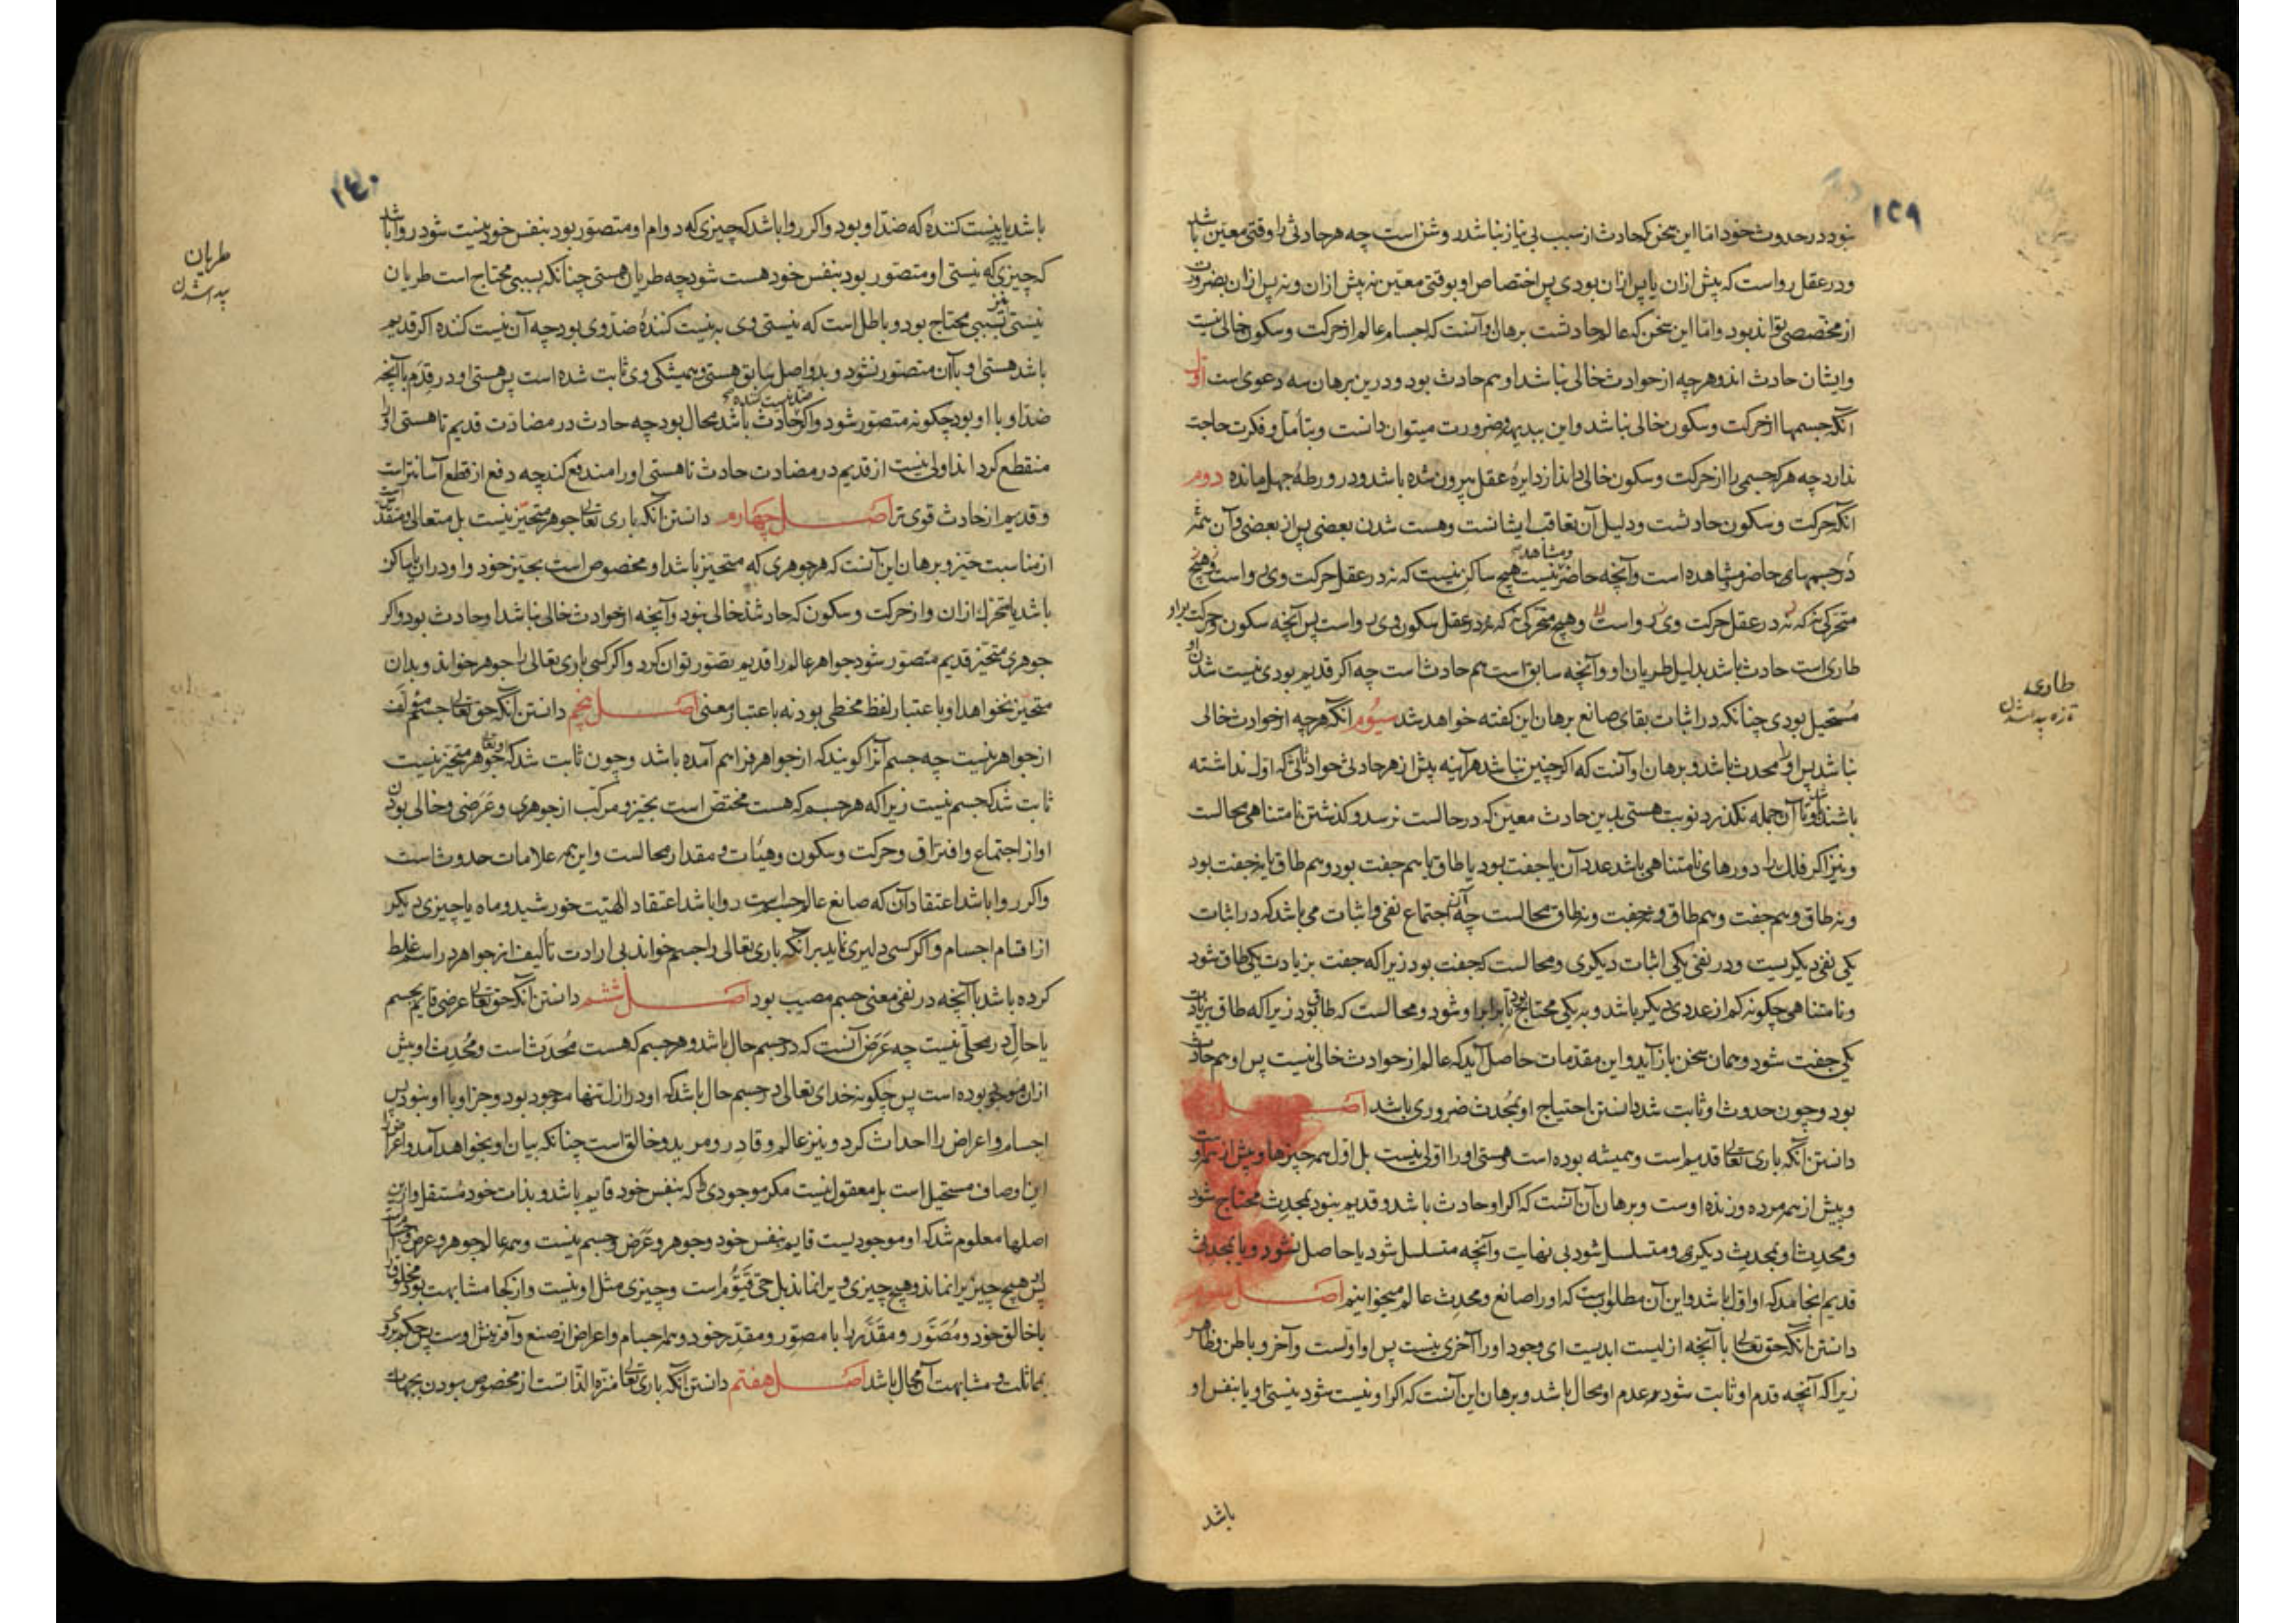 ۱۳۹
نبود در حدوث خود اما این سخن که حادث از سبب بی نیاز نباشد روشن است چه هر حادثی را وقتی معین باشد
و در عقل رواست که پیش ازان یا پس ازان بودی پس اختصاص او بوقتی معین نه پیش ازان و نه پس ازان بضرورت
از مخصصی تواند بود و اما این سخن که عالم حادثست برهان او آنست که اجسام عالم از حرکت و سکون خالی نیست
و ایشان حادث اند و هرچه از حوادث خالی نباشد او هم حادث بود و درین برهان سه دعوی است اول
آنکه جسمها از حرکت و سکون خالی نباشد و این ببدیهه و ضرورت میتوان دانست و بتأمل و فکرت حاجت
ندارد چه هرکه جسمی را از حرکت و سکون خالی داند از دایرهٔ عقل بیرون شده باشد و در ورطهٔ جهل مانده دوم
آنکه حرکت و سکون حادثست و دلیل آن تعاقب ایشانست و هست شدن بعضی پس از بعضی و آن همه
در جسمهای حاضر مشاهده است و آنچه حاضر و مشاهد نیست هیچ ساکن نیست که نه در عقل حرکت وی رواست و هیچ
متحرکی نه که نه در عقل حرکت وی رواست و هیچ متحرکی نه که نه در عقل سکون وی رواست پس آنچه سکون و حرکت براو
طاری است حادث باشد بدلیل طریان او و آنچه سابق است هم حادث است چه اگر قدیم بودی نیست شدن او
مستحیل بودی چنانکه در اثبات بقای صانع برهان این گفته خواهد شد سیوم آنکه هرچه از حوادث خالی
نباشد پس او محدث باشد و برهان او آنست که اگر چنین نباشد هرآینه پیش از هر حادثی حوادثی که اول نداشته
باشند و تا آن جمله نگذرد نوبت هستی بدین حادث معین که در حالست نرسد و گذشتن نامتناهی محالست
و نیز اگر فلک را دورهای نامتناهی باشد عدد آن یا جفت بود یا طاق یا هم جفت بود و هم طاق یا نه جفت بود
و نه طاق و هم جفت و هم طاق و نه جفت و نه طاق محالست چه آن اجتماع نفی و اثبات می باشد که در اثبات
یکی نفی دیگریست و در نفی یکی اثبات دیگری و محالست که جفت بود زیرا که جفت بزیادت یکی طاق شود
و نامتناهی چگونه کم از عددی دیگر باشد و به یکی محتاج بود تا برابر او شود و محالست که طاق بود زیرا که طاق بزیادت
یکی جفت شود و همان سخن باز آید و این مقدمات حاصل آید که عالم از حوادث خالی نیست پس او هم حادث
بود و چون حدوث او ثابت شد دانستن احتیاج او بمحدث ضروری باشد اصل
دانستن آنکه باری تعالی قدیم است و همیشه بوده است و هستی او را اولی نیست بل اول همه چیزها و پیش از همه اوست
و پیش از همه مرده و زنده اوست و برهان آن آنست که اگر او حادث باشد و قدیم نبود بمحدث محتاج شود
و محدث او بمحدث دیگری و متسلسل شود بی نهایت و آنچه متسلسل شود یا حاصل نشود و یا بمحدثی
قدیم انجامد که او اول باشد و این آن مطلوبست که او را صانع و محدث عالم میخوانیم اصل سوم
دانستن آنکه حق تعالی با آنچه ازلیست ابدیست ای وجود او را آخری نیست پس او اولست و آخر و باطن و ظاهر
زیرا که آنچه قدم او ثابت شود عدم او محال باشد و برهان این آنست که اگر او نیست شود نیستی او یا بنفس او
باشد
طاری
تازه پیدا شدن
۱۴۰
باشد یا بنیست کننده که ضد او بود و اگر روا باشد که چیزی که دوام او متصور بود بنفس خود نیست شود روا باشد
که چیزی که نیستی او متصور بود بنفس خود هست شود چه طریان هستی چنانکه بسببی محتاج است طریان
نیستی نیز بسببی محتاج بود و باطل است که نیستی وی به نیست کنندهٔ ضد وی بود چه آن نیست کننده اگر قدیم
باشد هستی او با آن متصور نشود و بدو اصل سابق هستی و همیشگی وی ثابت شده است پس هستی او در قدم با آنچه
ضد او با او بود چگونه متصور شود و اگر ضد نیست کننده حادث باشد محال بود چه حادث در مضادت قدیم تا هستی او را
منقطع گرداند اولی نیست از قدیم در مضادت حادث تا هستی او را مندفع کند چه دفع از قطع آسانتر است
و قدیم از حادث قوی تر است اصل چهارم دانستن آنکه باری تعالی جوهر متحیز نیست بل متعالی و مقدس
از مناسبت حیز و برهان این آنست که هر جوهری که متحیز باشد او مخصوص است بحیز خود و او دران یا ساکن
باشد یا متحرک ازان و از حرکت و سکون که حادثند خالی نبود و آنچه از حوادث خالی نباشد او حادث بود و اگر
جوهری متحیز قدیم متصور شود جواهر عالم را قدیم تصور توان کرد و اگر کسی باری تعالی را جوهر خواند و بدان
متحیز نخواهد او باعتبار لفظ مخطی بود نه باعتبار معنی اصل پنجم دانستن آنکه حق تعالی جسم مؤلف
از جواهر نیست چه جسم آنرا گویند که از جواهر فراهم آمده باشد و چون ثابت شد که او تعالی جوهر متحیز نیست
ثابت شد که جسم نیست زیرا که هر جسم که هست مختص است بحیز و مرکب از جوهری و عرضی و خالی بودن
او از اجتماع و افتراق و حرکت و سکون و هیئات و مقدار محالست و این همه علامات حدوث است
و اگر روا باشد اعتقاد آن که صانع عالم جسم است روا باشد اعتقاد الهیت خورشید و ماه یا چیزی دیگر
از اقسام اجسام و اگر کسی دلیری نماید برآنکه باری تعالی را جسم خواند بی ارادت تألیف از جواهر در اسم غلط
کرده باشد با آنچه در نفی معنی جسم مصیب بود اصل ششم دانستن آنکه حق تعالی عرضی قایم بجسم
یا حال در محلی نیست چه عرض آنست که در جسم حال باشد و هر جسم که هست محدث است و محدث او پیش
ازان موجود بوده است پس چگونه خدای تعالی در جسم حال باشد که او در ازل تنها موجود بود و جز او با او نبود پس
اجسام و اعراض را احداث کرد و نیز عالم و قادر و مرید و خالق است چنانکه بیان او بخواهد آمد و اعراض را
این اوصاف مستحیل است بل معقول نیست مگر موجودی را که بنفس خود قایم باشد و بذات خود مستقل و ازین
اصلها معلوم شد که او موجودیست قایم بنفس خود و جوهر و عرض و جسم نیست و همه عالم جوهر و عرض و جسم است
پس او هیچ چیز را نماند و هیچ چیزی ویرا نماند بل حی قیوم است و چیزی مثل او نیست و از کجا مشابهت بود مخلوق را
با خالق خود و مصور و مقدر را با مصور و مقدر خود و همه اجسام و اعراض از صنع و آفرینش اوست پس حکم برو
بمماثلت و مشابهت آن محال باشد اصل هفتم دانستن آنکه باری تعالی منزه الذاتست از مخصوص بودن بجهات
طریان
پیدا شدن